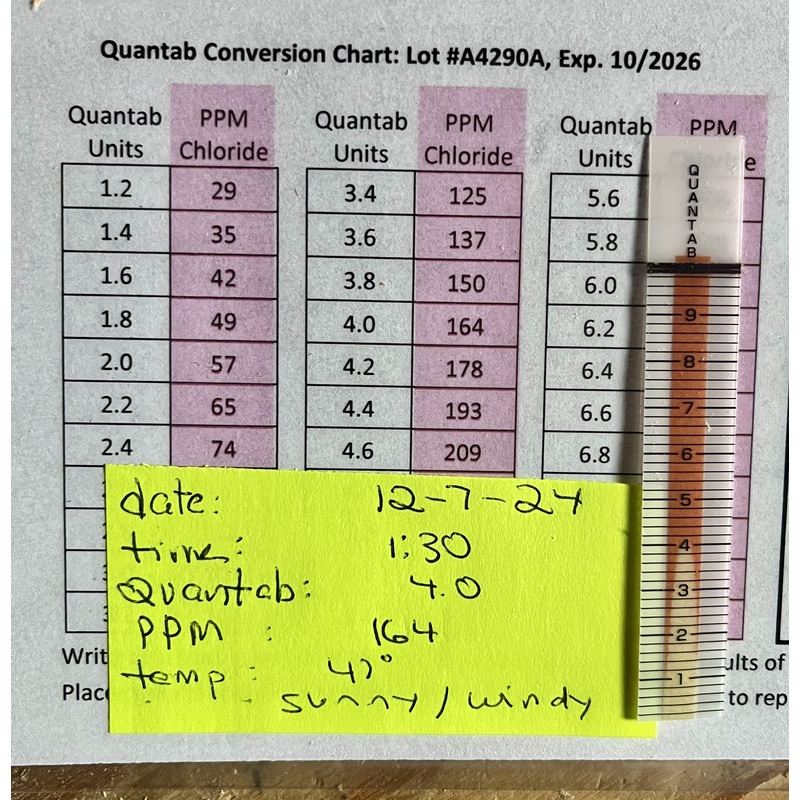 Quantab Conversion Chart: Lot #A4290A, Exp. 10/2026
Quantab Units PPM Chloride
1.2 29
1.4 35
1.6 42
1.8 49
2.0 57
2.2 65
2.4 74
Quantab Units PPM Chloride
3.4 125
3.6 137
3.8 150
4.0 164
4.2 178
4.4 193
4.6 209
Quantab Units PPM
5.6
5.8
6.0
6.2
6.4
6.6
6.8
QUANTAB
9
8
7
6
5
4
3
2
1
date: 12-7-24
time: 1:30
Quantab: 4.0
PPM : 164
temp: 47°
sunny / windy
Writ
Place
ults of
to rep